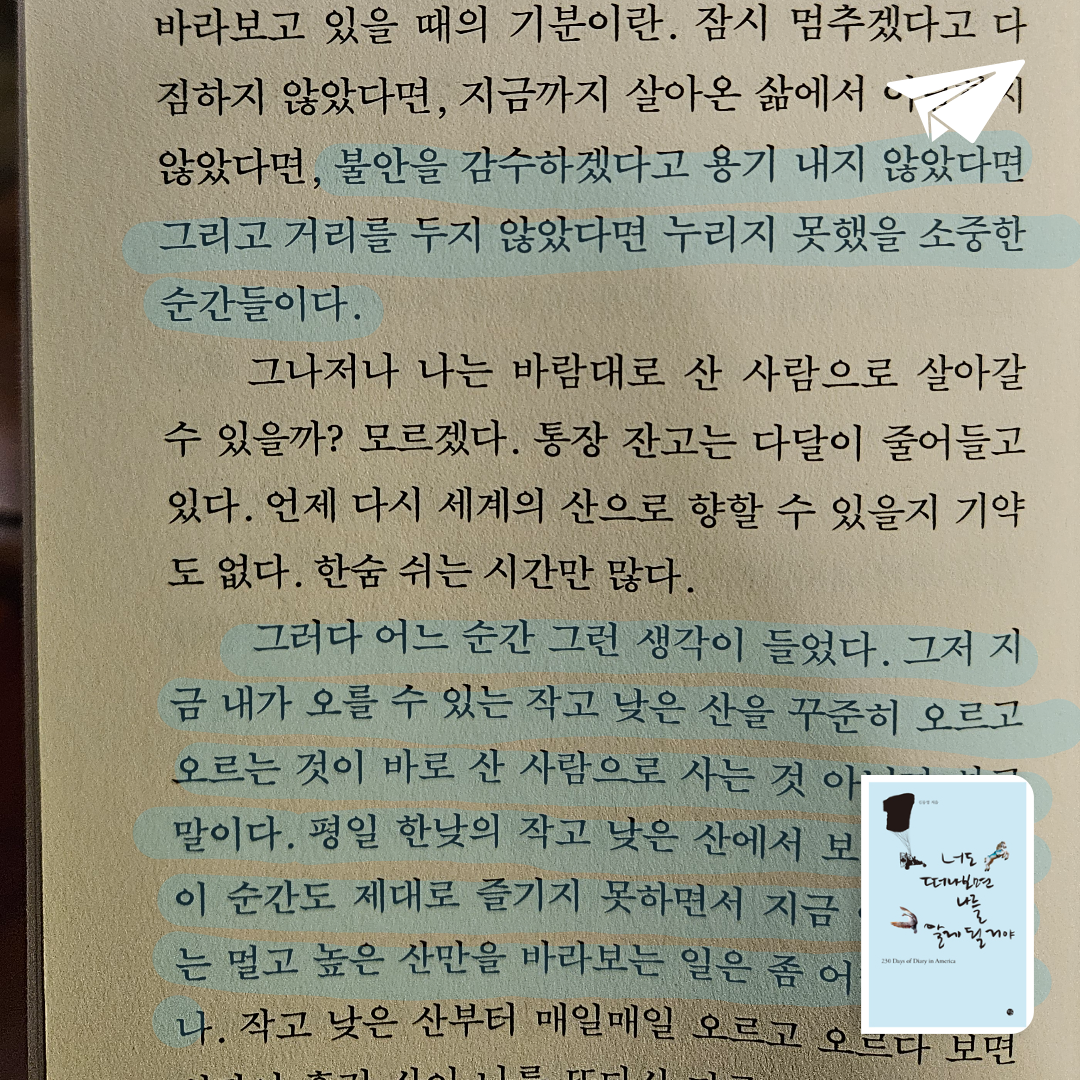 바라보고 있을 때의 기분이란. 잠시 멈추겠다고 다
짐하지 않았다면, 지금까지 살아온 삶에서
않았다면, 불안을 감수하겠다고 용기 내지 않았다면
그리고 거리를 두지 않았다면 누리지 못했을 소중한
순간들이다.
그나저나 나는 바람대로 산 사람으로 살아갈
수 있을까? 모르겠다. 통장 잔고는 다달이 줄어들고
있다. 언제 다시 세계의 산으로 향할 수 있을지 기약
도 없다. 한숨 쉬는 시간만 많다.
그러다 어느 순간 그런 생각이 들었다. 그저 지
금 내가 오를 수 있는 작고 낮은 산을 꾸준히 오르고
오르는 것이 바로 산 사람으로 사는 것
말이다. 평일 한낮의 작고 낮은 산에서
이 순간도 제대로 즐기지 못하면서 지금
는 멀고 높은 산만을 바라보는 일은 좀
나. 작고 낮은 산부터 매일매일 오르고 오르다 보면
너도
떠나보면
나를
알게 될 거야
230 Days of Diary in America